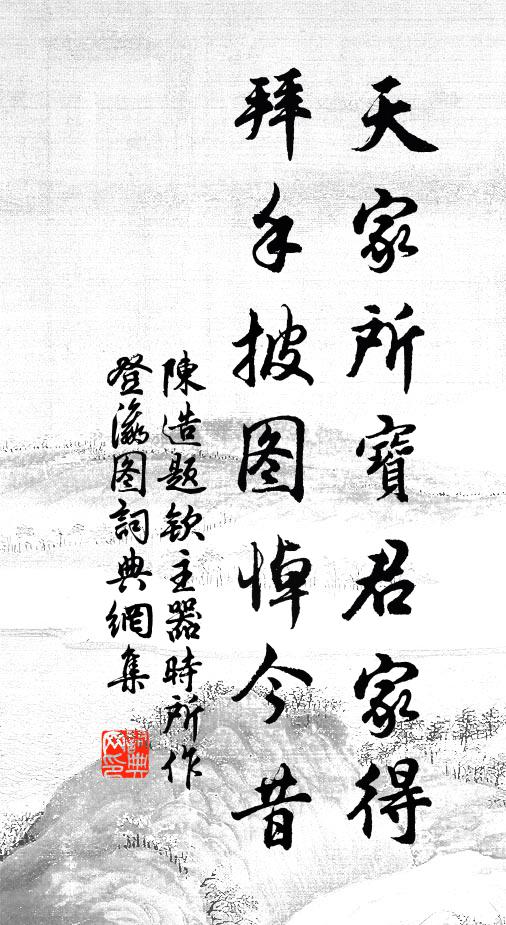 天家所寶君家得
拜手披图悼今昔
陳造題欽主器時所作
登瀛图詞典網集